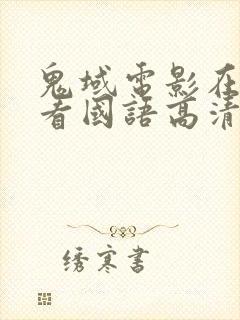 鬼域電影在
看國語高清
绣寒書